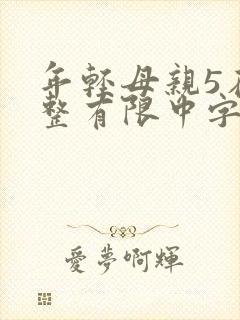 年輕母親5在
整有限中字
愛夢啊輝